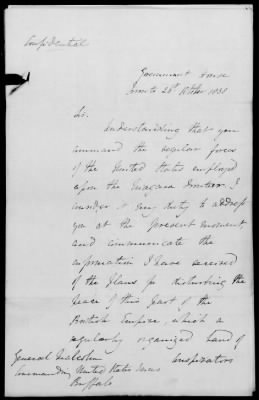 Confidential
Government House
Toronto 26th October 1838
Sir.
Understanding that you
command the regular forces
of the United States employed
upon the Niagara frontier I
consider it my duty to address
you at the present moment,
and communicate the
information I have received
of the plans for disturbing the
peace of this part of the
British Empire, which a
regularly organized band of
conspirators
General
Commanding United States Forces
Buffalo